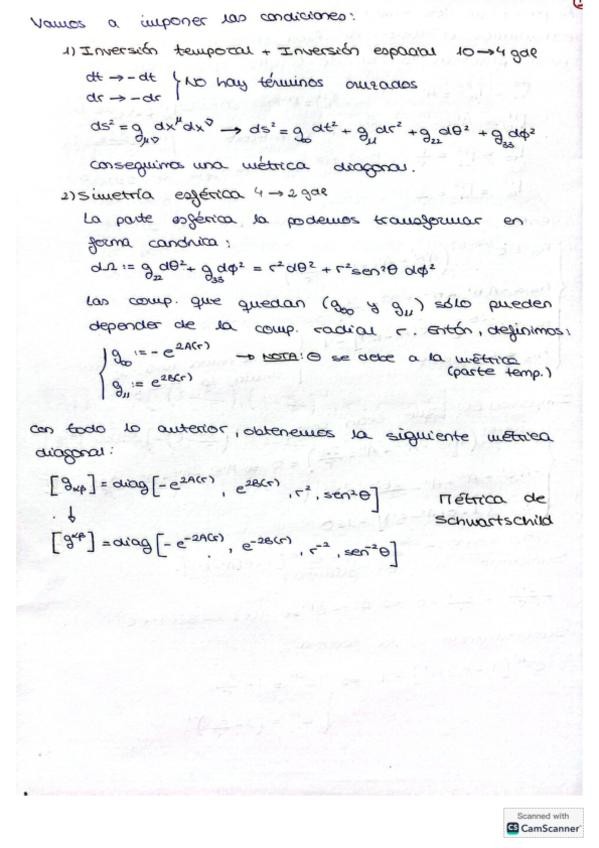 Vamos a imponer las condiciones:
1) Inversión temporal + Inversión espacial 10→4 gdl
dt → -dt
dr → -dr } No hay términos cruzados
ds² = g_μν dx^μ dx^ν → ds² = g₀₀ dt² + g₁₁ dr² + g₂₂ dθ² + g₃₃ dϕ²
Conseguimos una métrica diagonal.
2) Simetría esférica 4→2 gdl
La parte esférica la podemos transformar en
forma canónica:
dΩ := g₂₂ dθ² + g₃₃ dϕ² = r² dθ² + r² sen²θ dϕ²
Las comp. que quedan (g₀₀ y g₁₁) sólo pueden
depender de la comp. radial r. Entón, definimos:
{ g₀₀ := -e^{2A(r)} → NOTA: ⊖ se debe a la métrica
(parte temp.)
g₁₁ := e^{2B(r)}
Con todo lo anterior, obtenemos la siguiente métrica
diagonal:
[g_αβ] = diag[-e^{2A(r)}, e^{2B(r)}, r², sen²θ]
Métrica de
Schwartschild
↓
[g^αβ] = diag[-e^{-2A(r)}, e^{-2B(r)}, r⁻², sen⁻²θ]
Scanned with
CS CamScanner